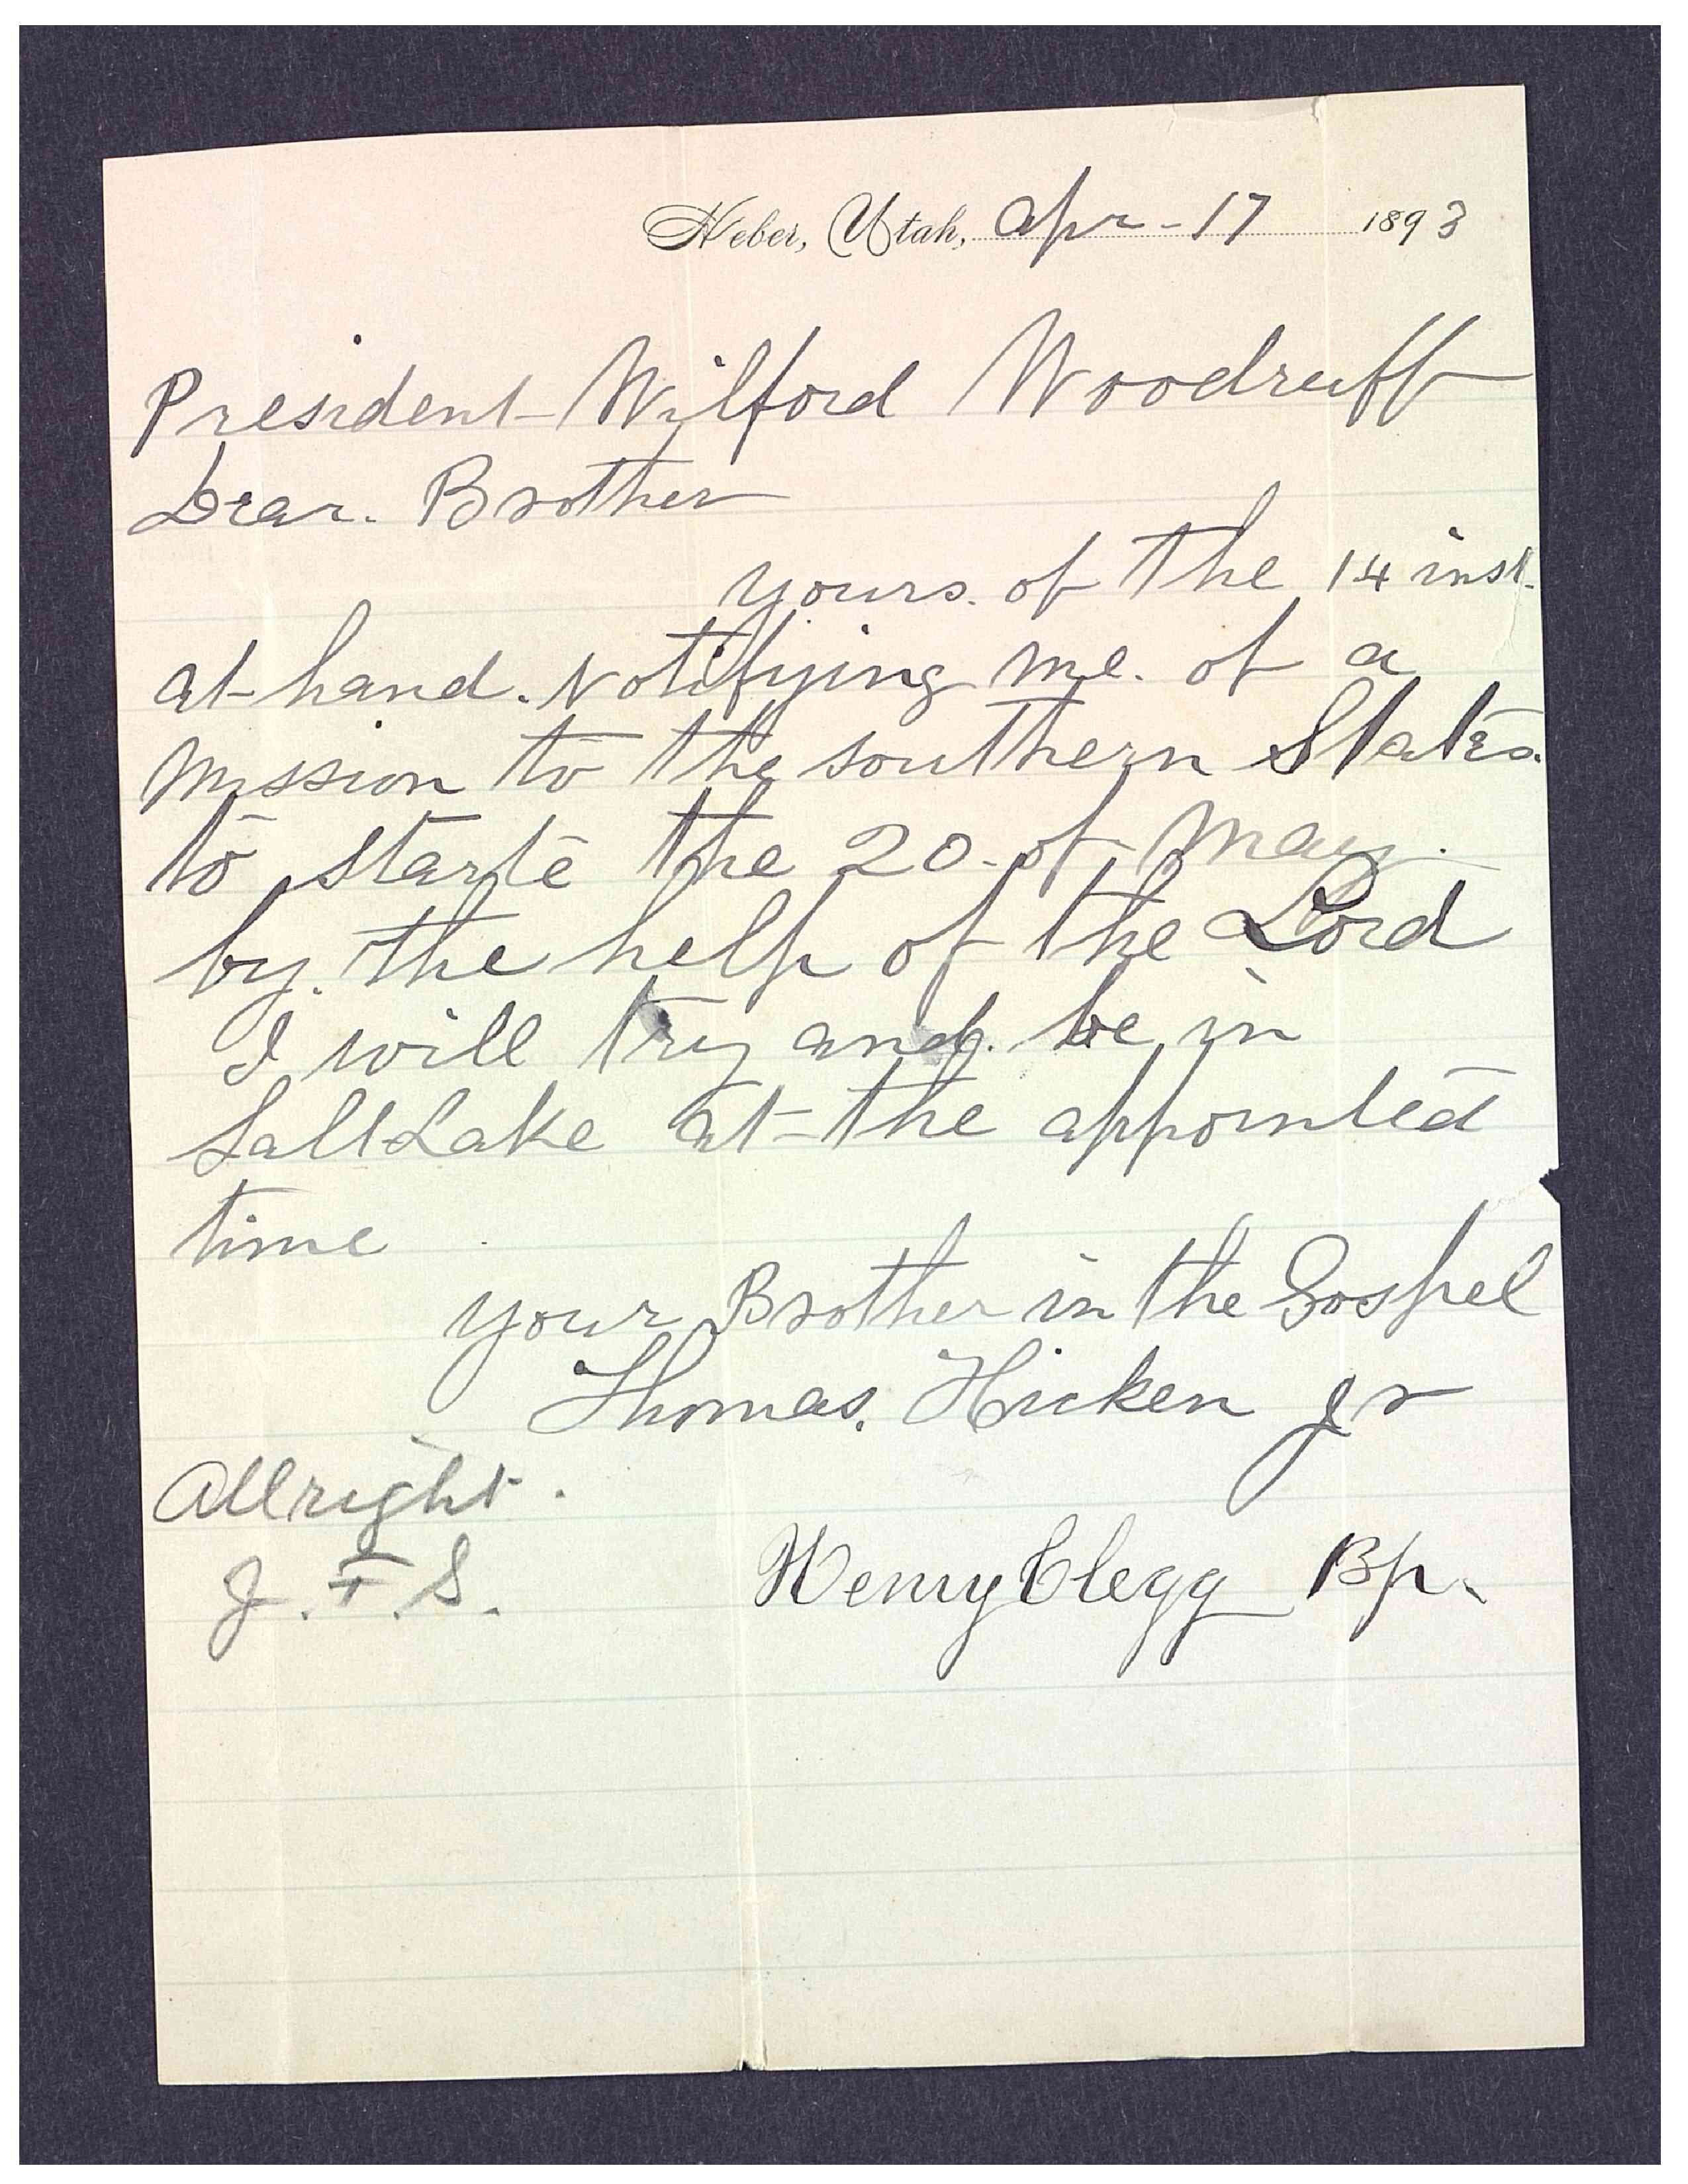 Heber, Utah, Apr - 17 1893
President Wilford Woodruff
Dear. Brother
yours. of the 14 inst.
at hand. Notifying me. of a
mission to the southern States.
to starte the 20 - of May.
by. the help of the Lord
I will try and. be in
Salt Lake at the appointed
time
your Brother in the Gospel
Thomas. Hicken Jr
Allright.
J. F. S.
Henry Clegg Bp.